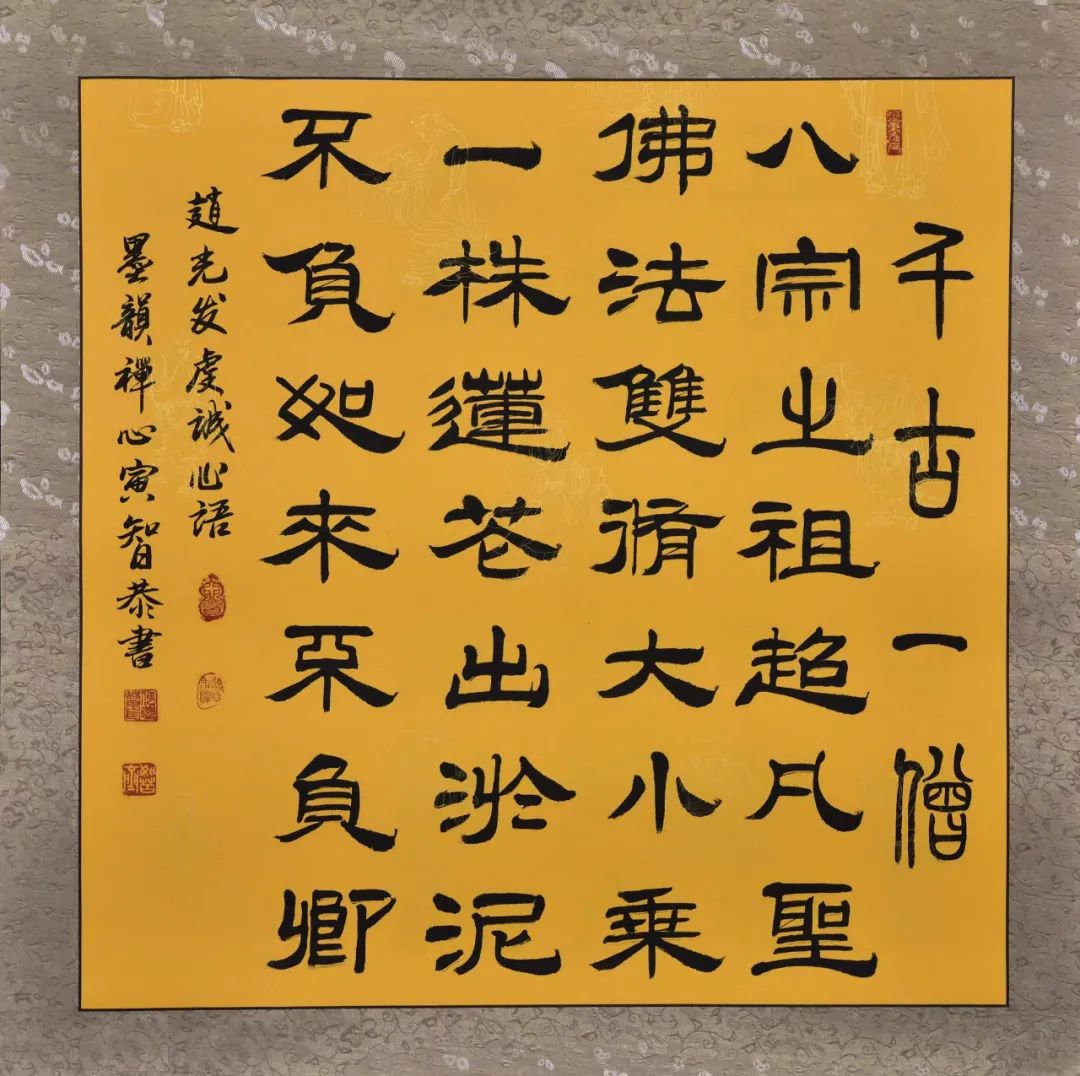 千古一僧
八宗之祖超凡聖
佛法雙脩大小乘
一株蓮芲出淤泥
不負如來不負卿
趙光发虔誠心語
墨韻禪心寅智恭書